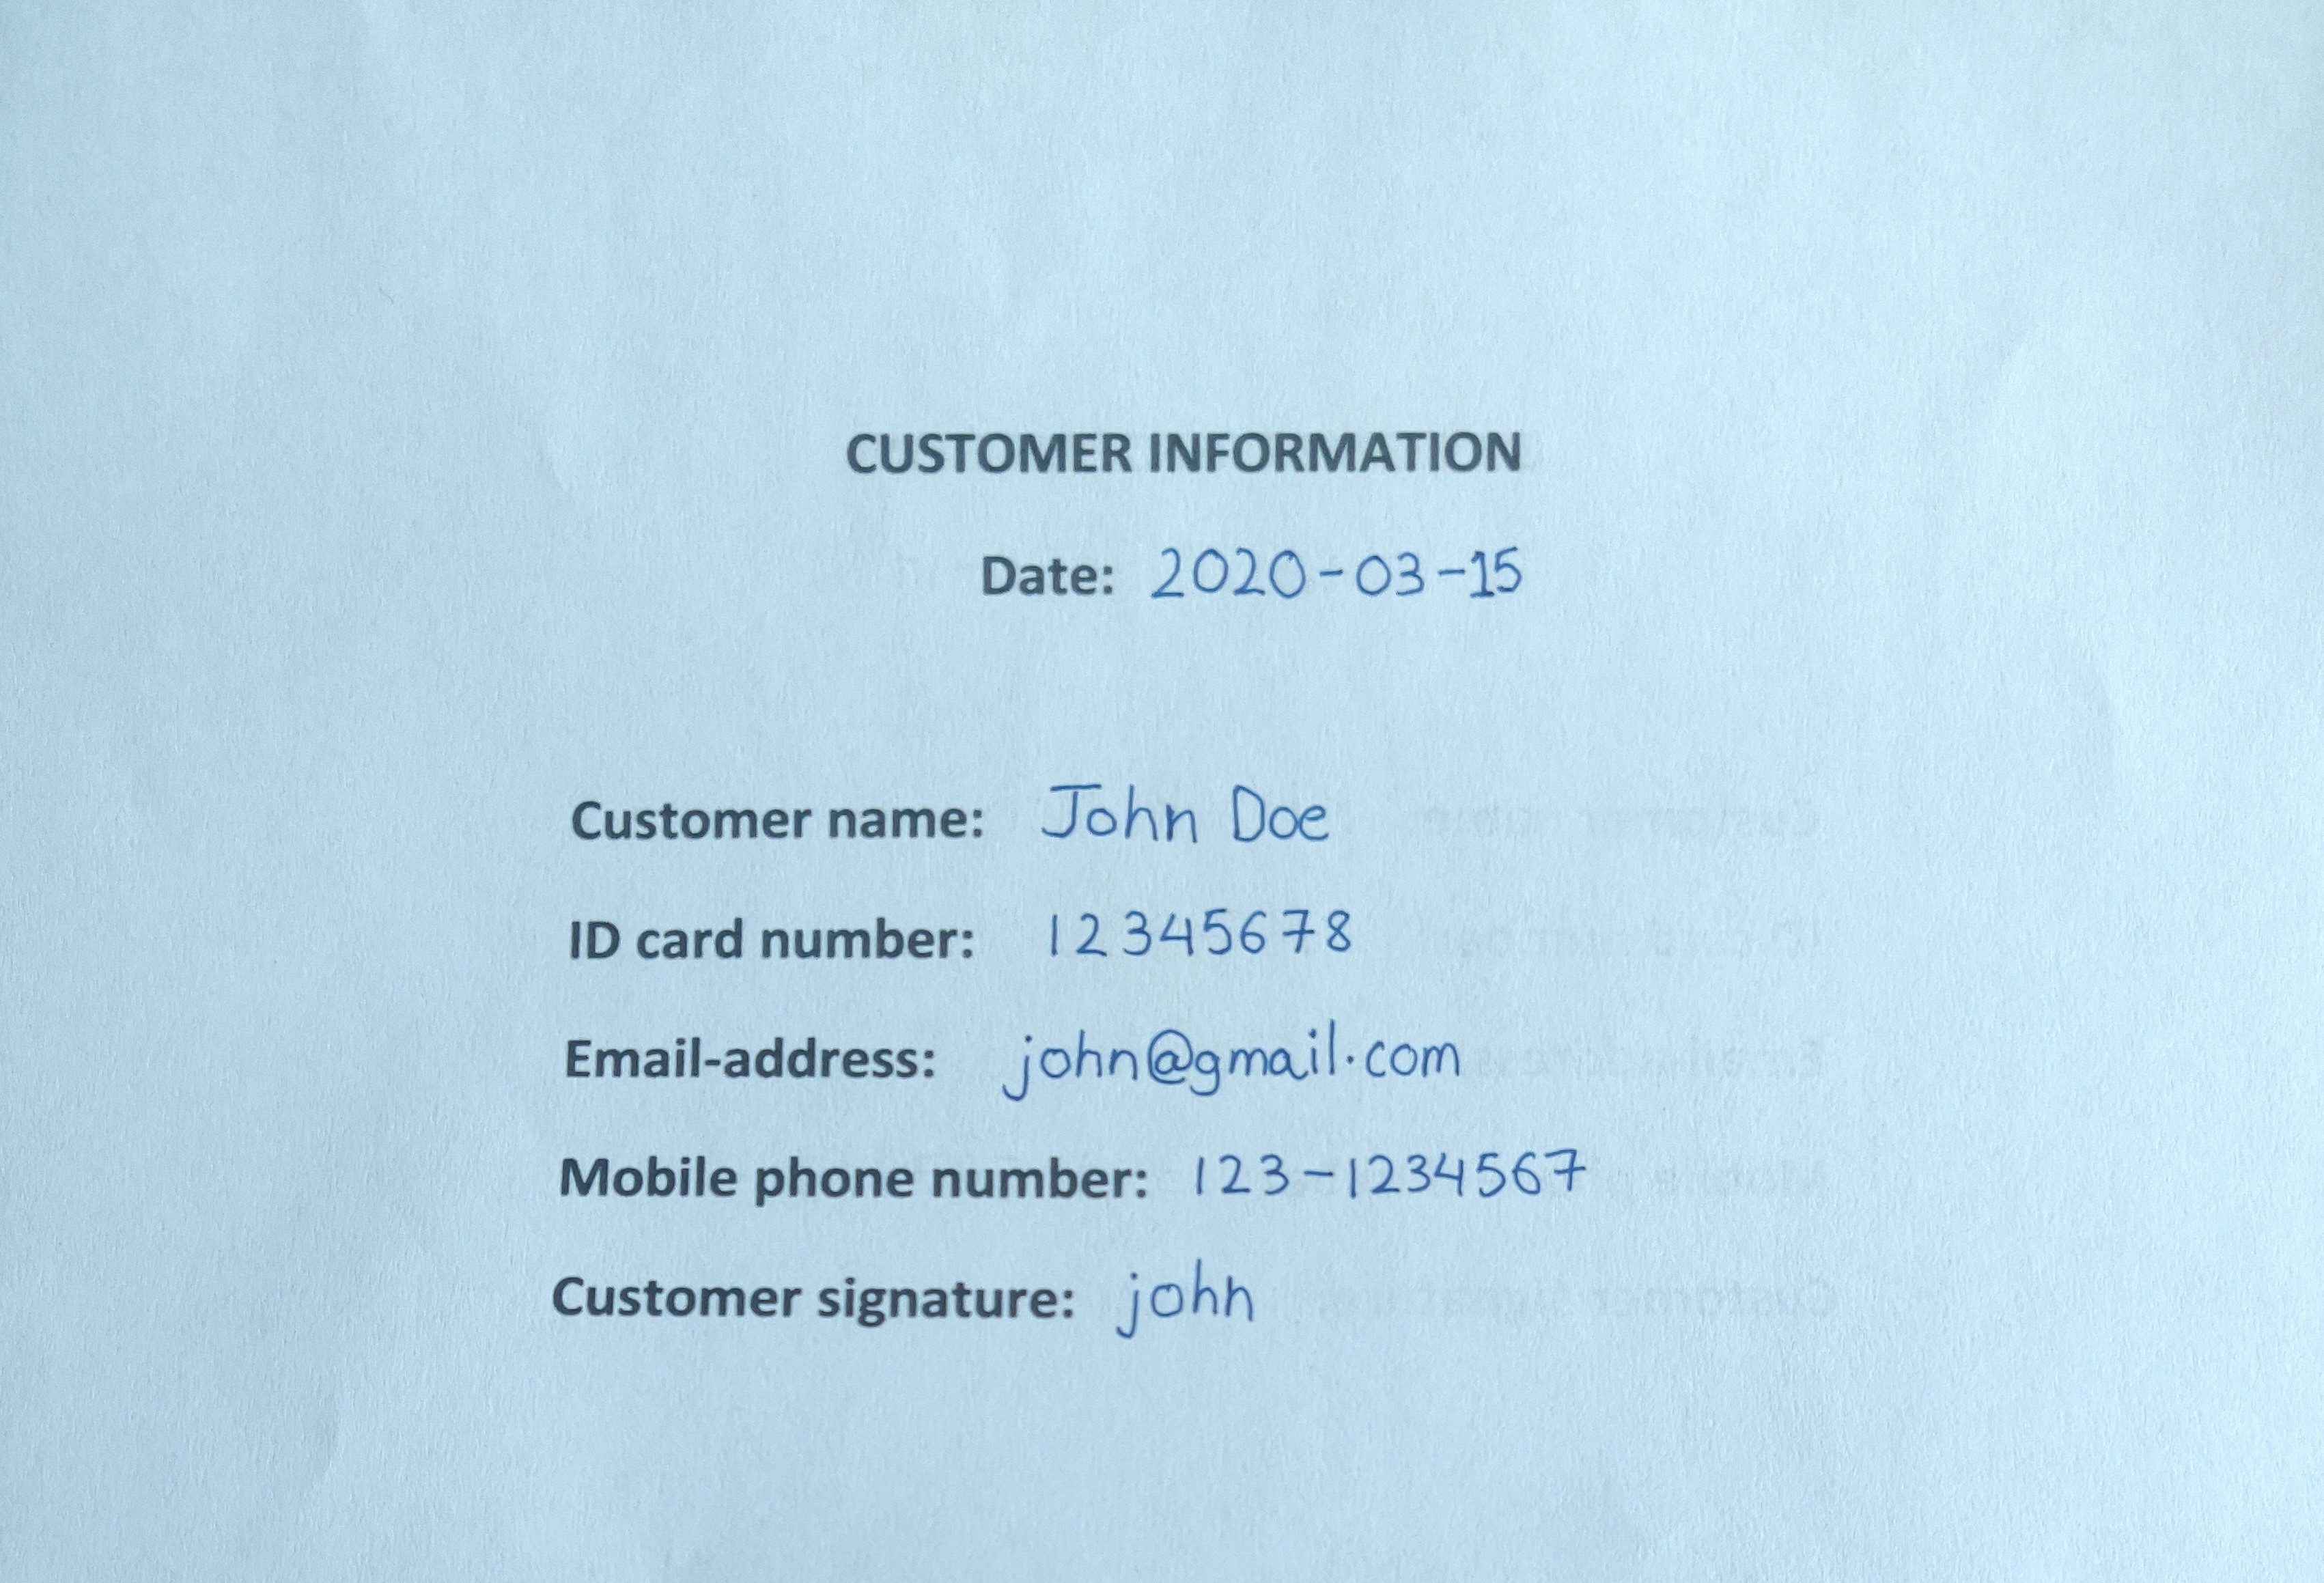 CUSTOMER INFORMATION
Date: 2020-03-15
Customer name: John Doe
ID card number: 12345678
Email-address: john@gmail.com
Mobile phone number: 123-1234567
Customer signature: john